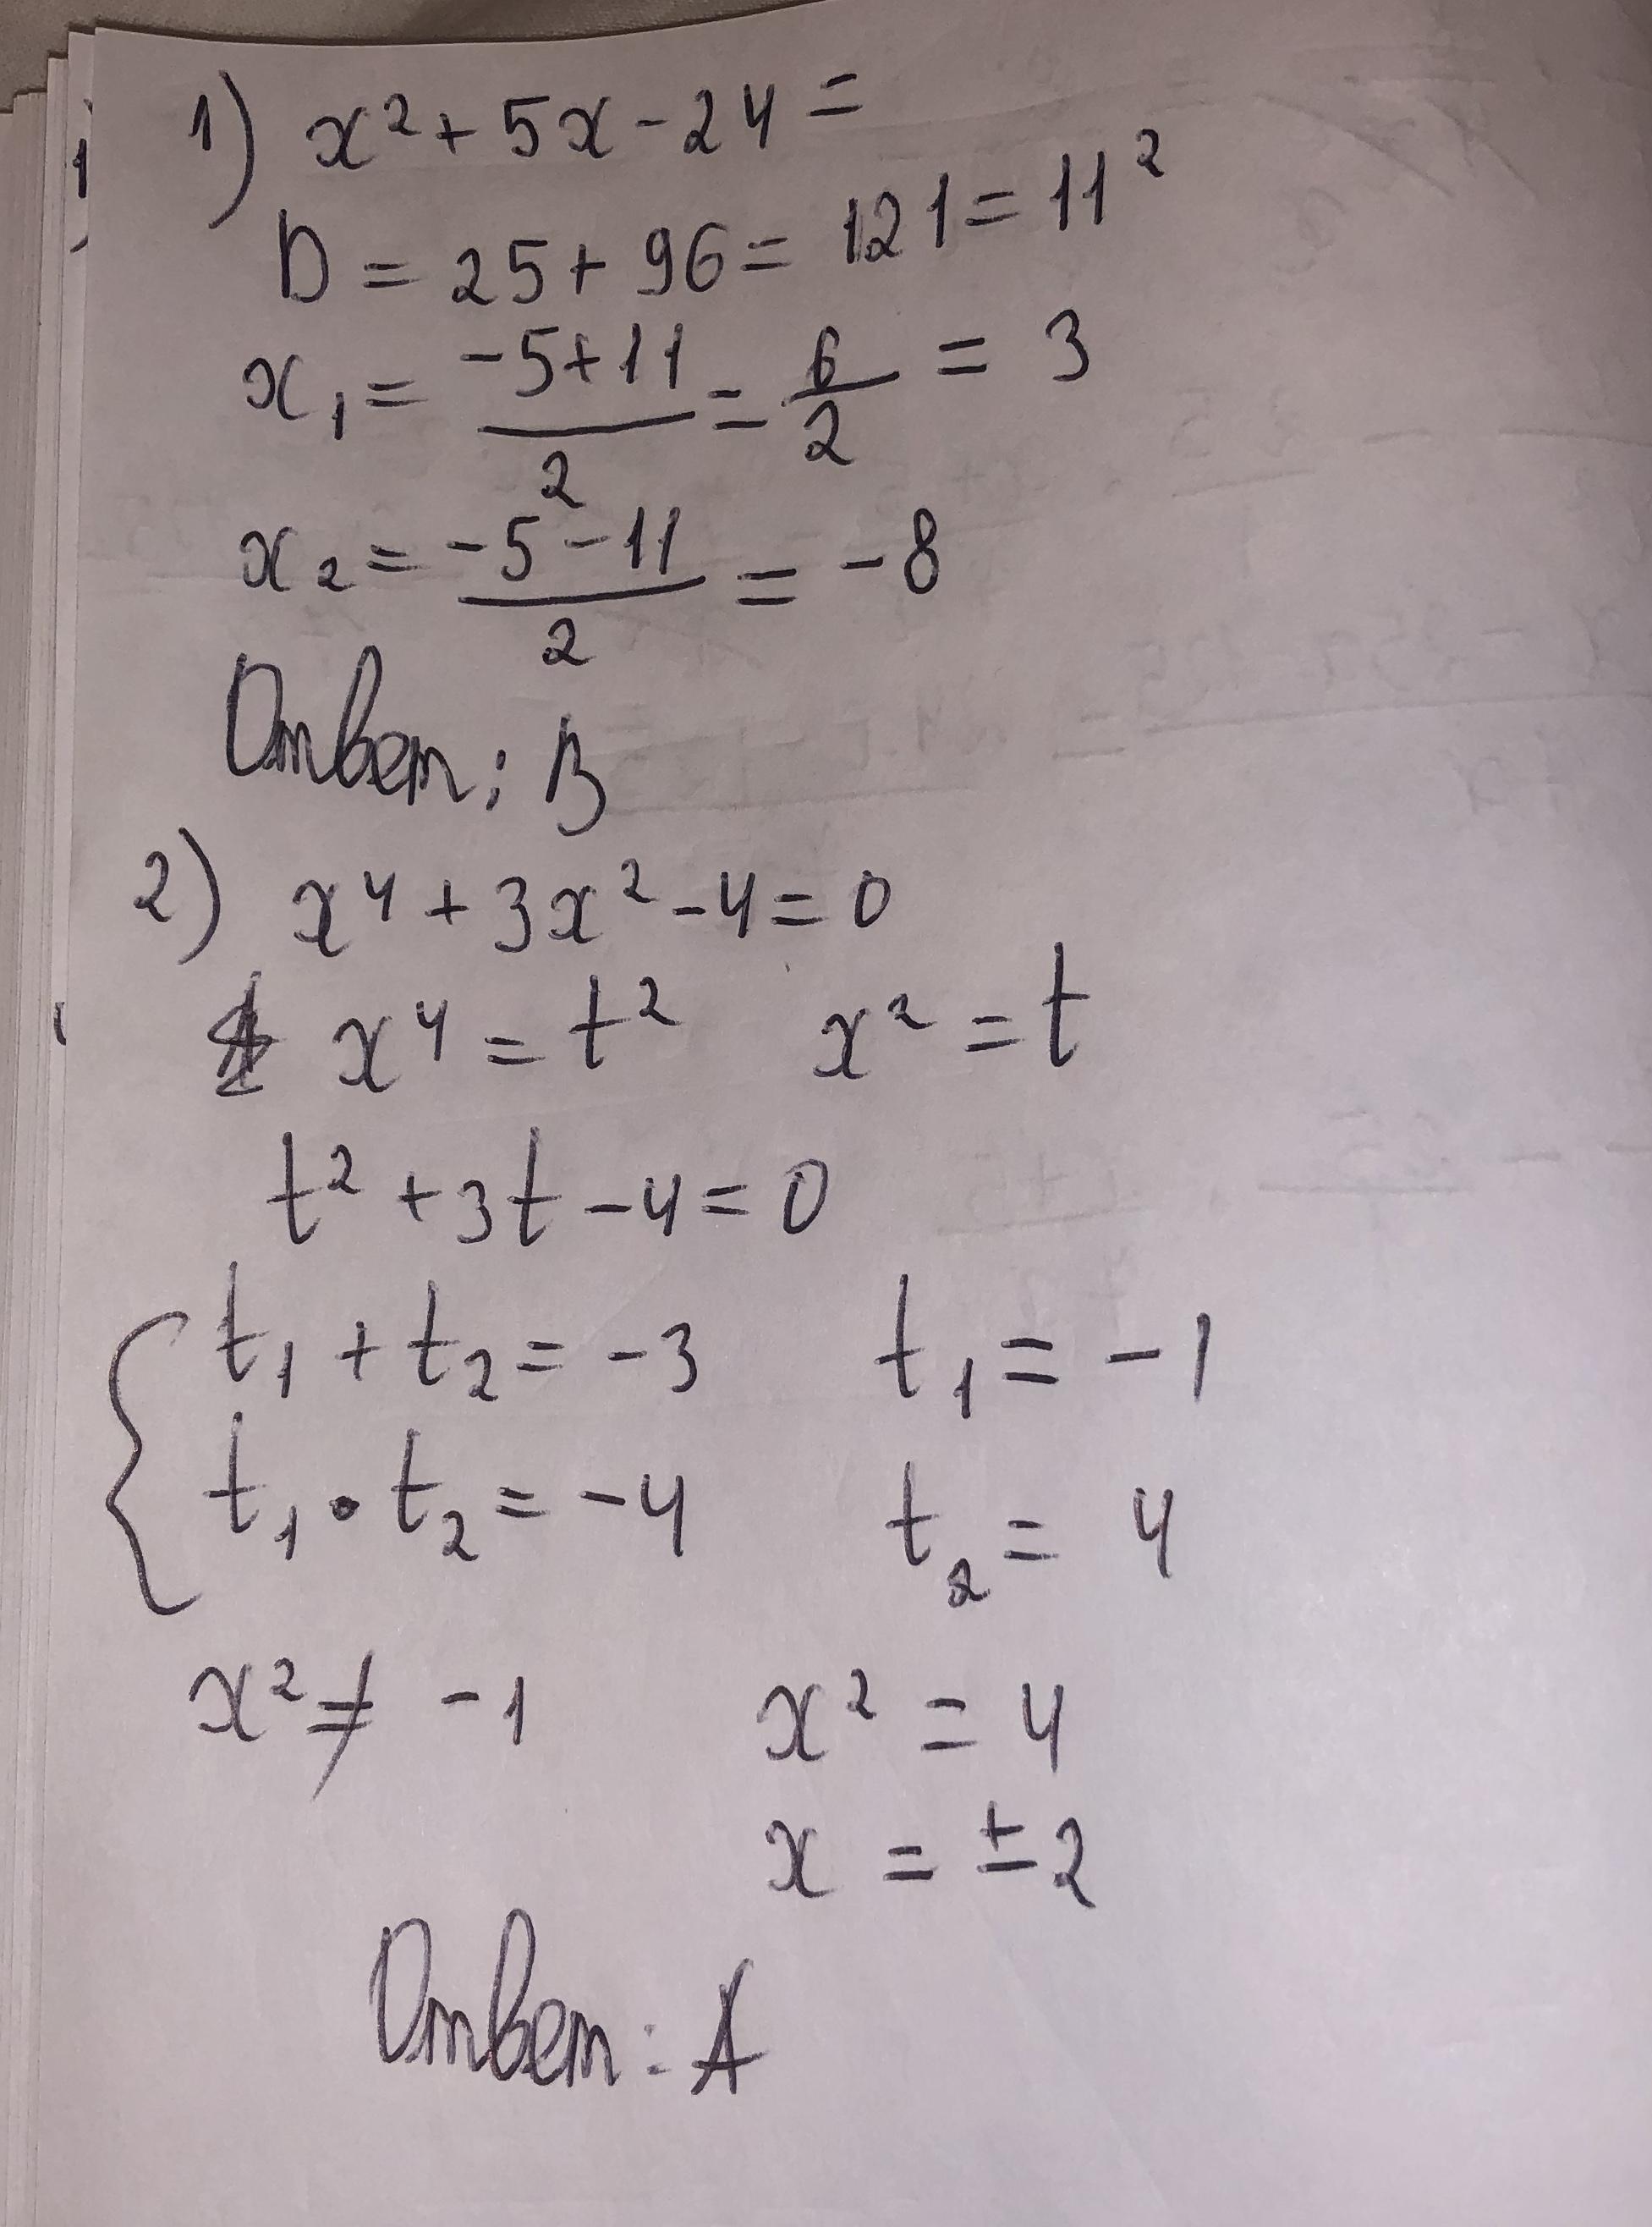 1) x² + 5x - 24 =
D = 25 + 96 = 121 = 11²
x₁ = (-5+11)/2 = 6/2 = 3
x₂ = (-5-11)/2 = -8
Ответ: В
2) x⁴ + 3x² - 4 = 0
x⁴ = t² x² = t
t² + 3t - 4 = 0
{ t₁ + t₂ = -3 t₁ = -1
t₁ • t₂ = -4 t₂ = 4
x² ≠ -1 x² = 4
x = ±2
Ответ: А